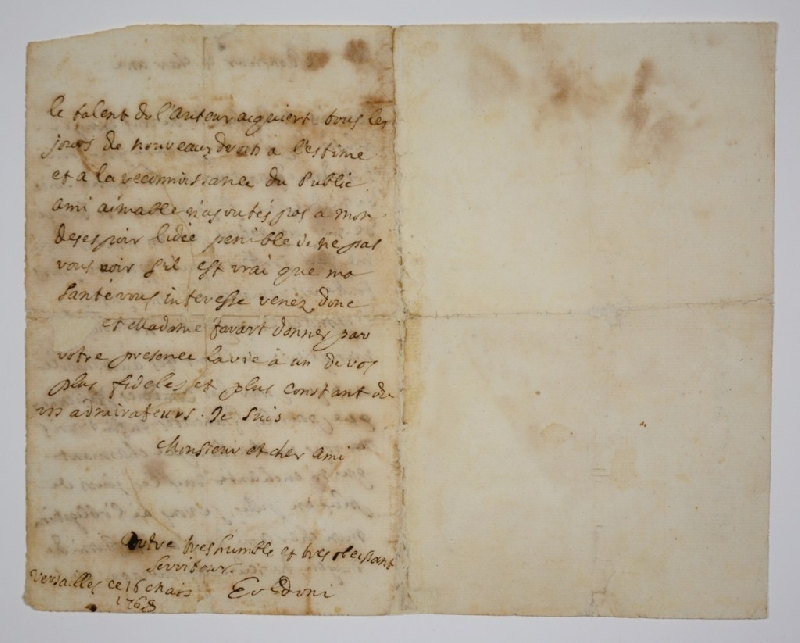 le talent de l'auteur acquiert tous les
jours de nouveaux droits a l'estime
et a la reconnoissance du Public
ami aimable n'ajoutés pas a mon
desespoir lidée penible de ne pas
vous voir sil est vrai que ma
santé vous interesse venéz donc
et Madame favart donner par
votre presence la vie à un de vos
plus fideles et plus constant de
vos admirateurs. Je suis
Monsieur et cher ami
Votre tres humble et tres obeissant
serviteur
Versailles ce 16 Mars
1768